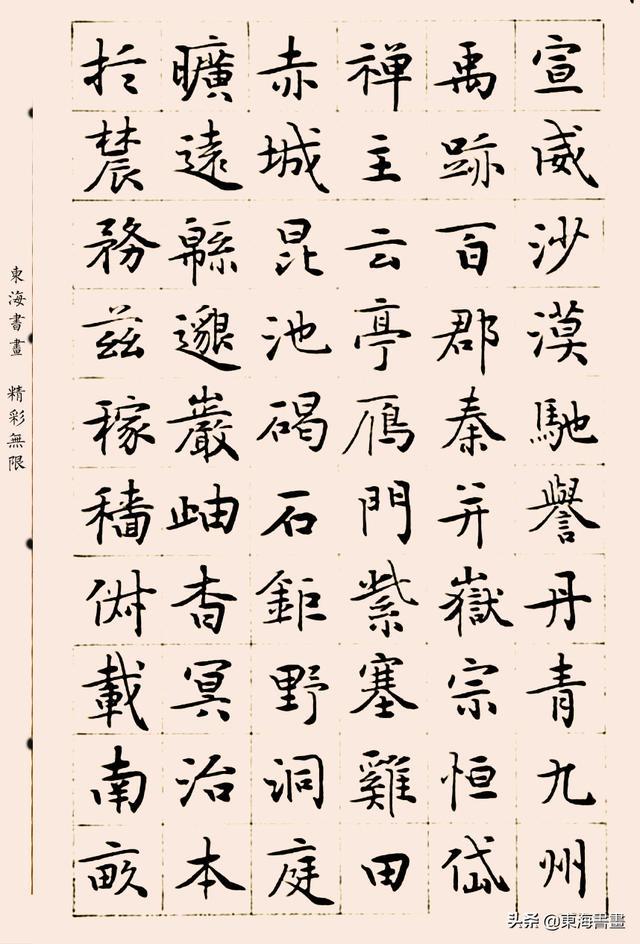 宣威沙漠馳譽丹青九州
禹跡百郡秦并嶽宗恒岱
禪主云亭鴈門紫塞雞田
赤城昆池碣石鉅野洞庭
曠遠緜邈巖岫杳冥治本
於農務茲稼穡俶載南畝
東海書畫 精彩無限
头条 @東海書畫